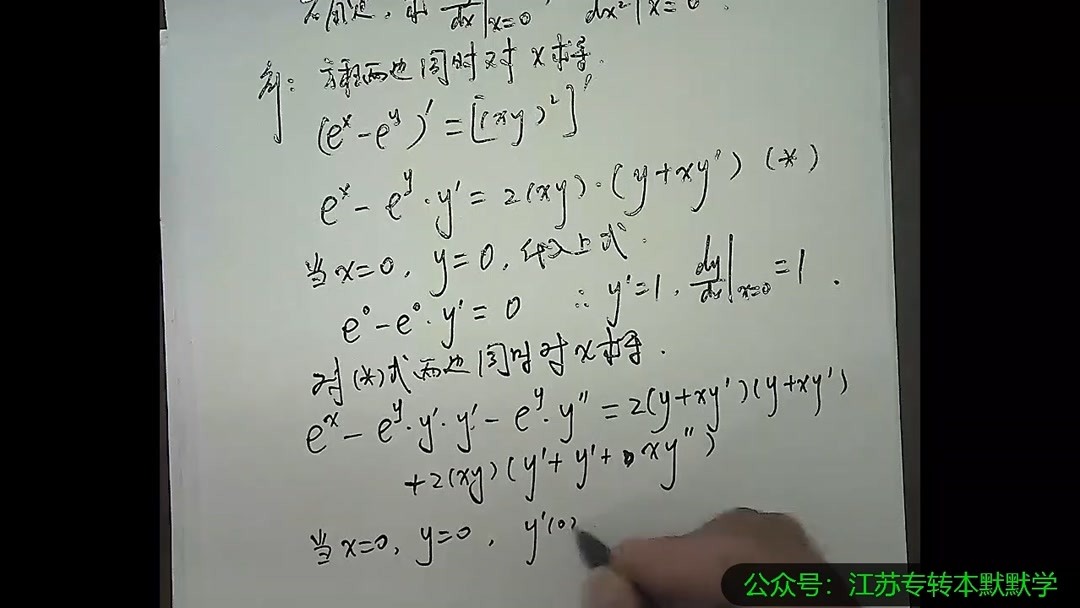 dy/dx|x=0, dx²|x=0.
解: 方程两边同时对x求导.
(e^x - e^y)' = [(xy)²]'
e^x - e^y·y' = 2(xy)·(y+xy') (*)
当x=0, y=0, 代入上式.
e^0 - e^0·y' = 0 ∴ y'=1, dy/dx|x=0 = 1.
对(*)式两边同时对x求导.
e^x - e^y·y'·y' - e^y·y'' = 2(y+xy')(y+xy')
+2(xy)(y'+y'+xy'')
当x=0, y=0, y'(0)
公众号：江苏专转本默默学